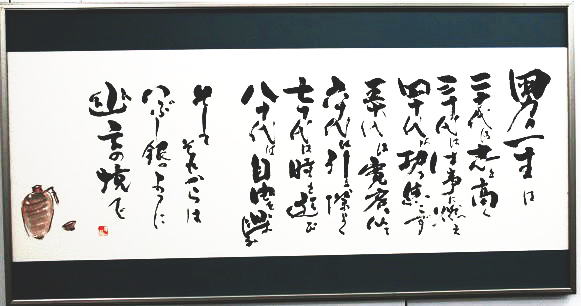 男の一生は
二十代は志を高く
三十代は仕事に燃え
四十代は功績のこす
五十代は寛容
六十代は引き際よく
七十代は時を遊び
八十代は自由を
そして それからは
いぶし銀のように
幽玄の境で